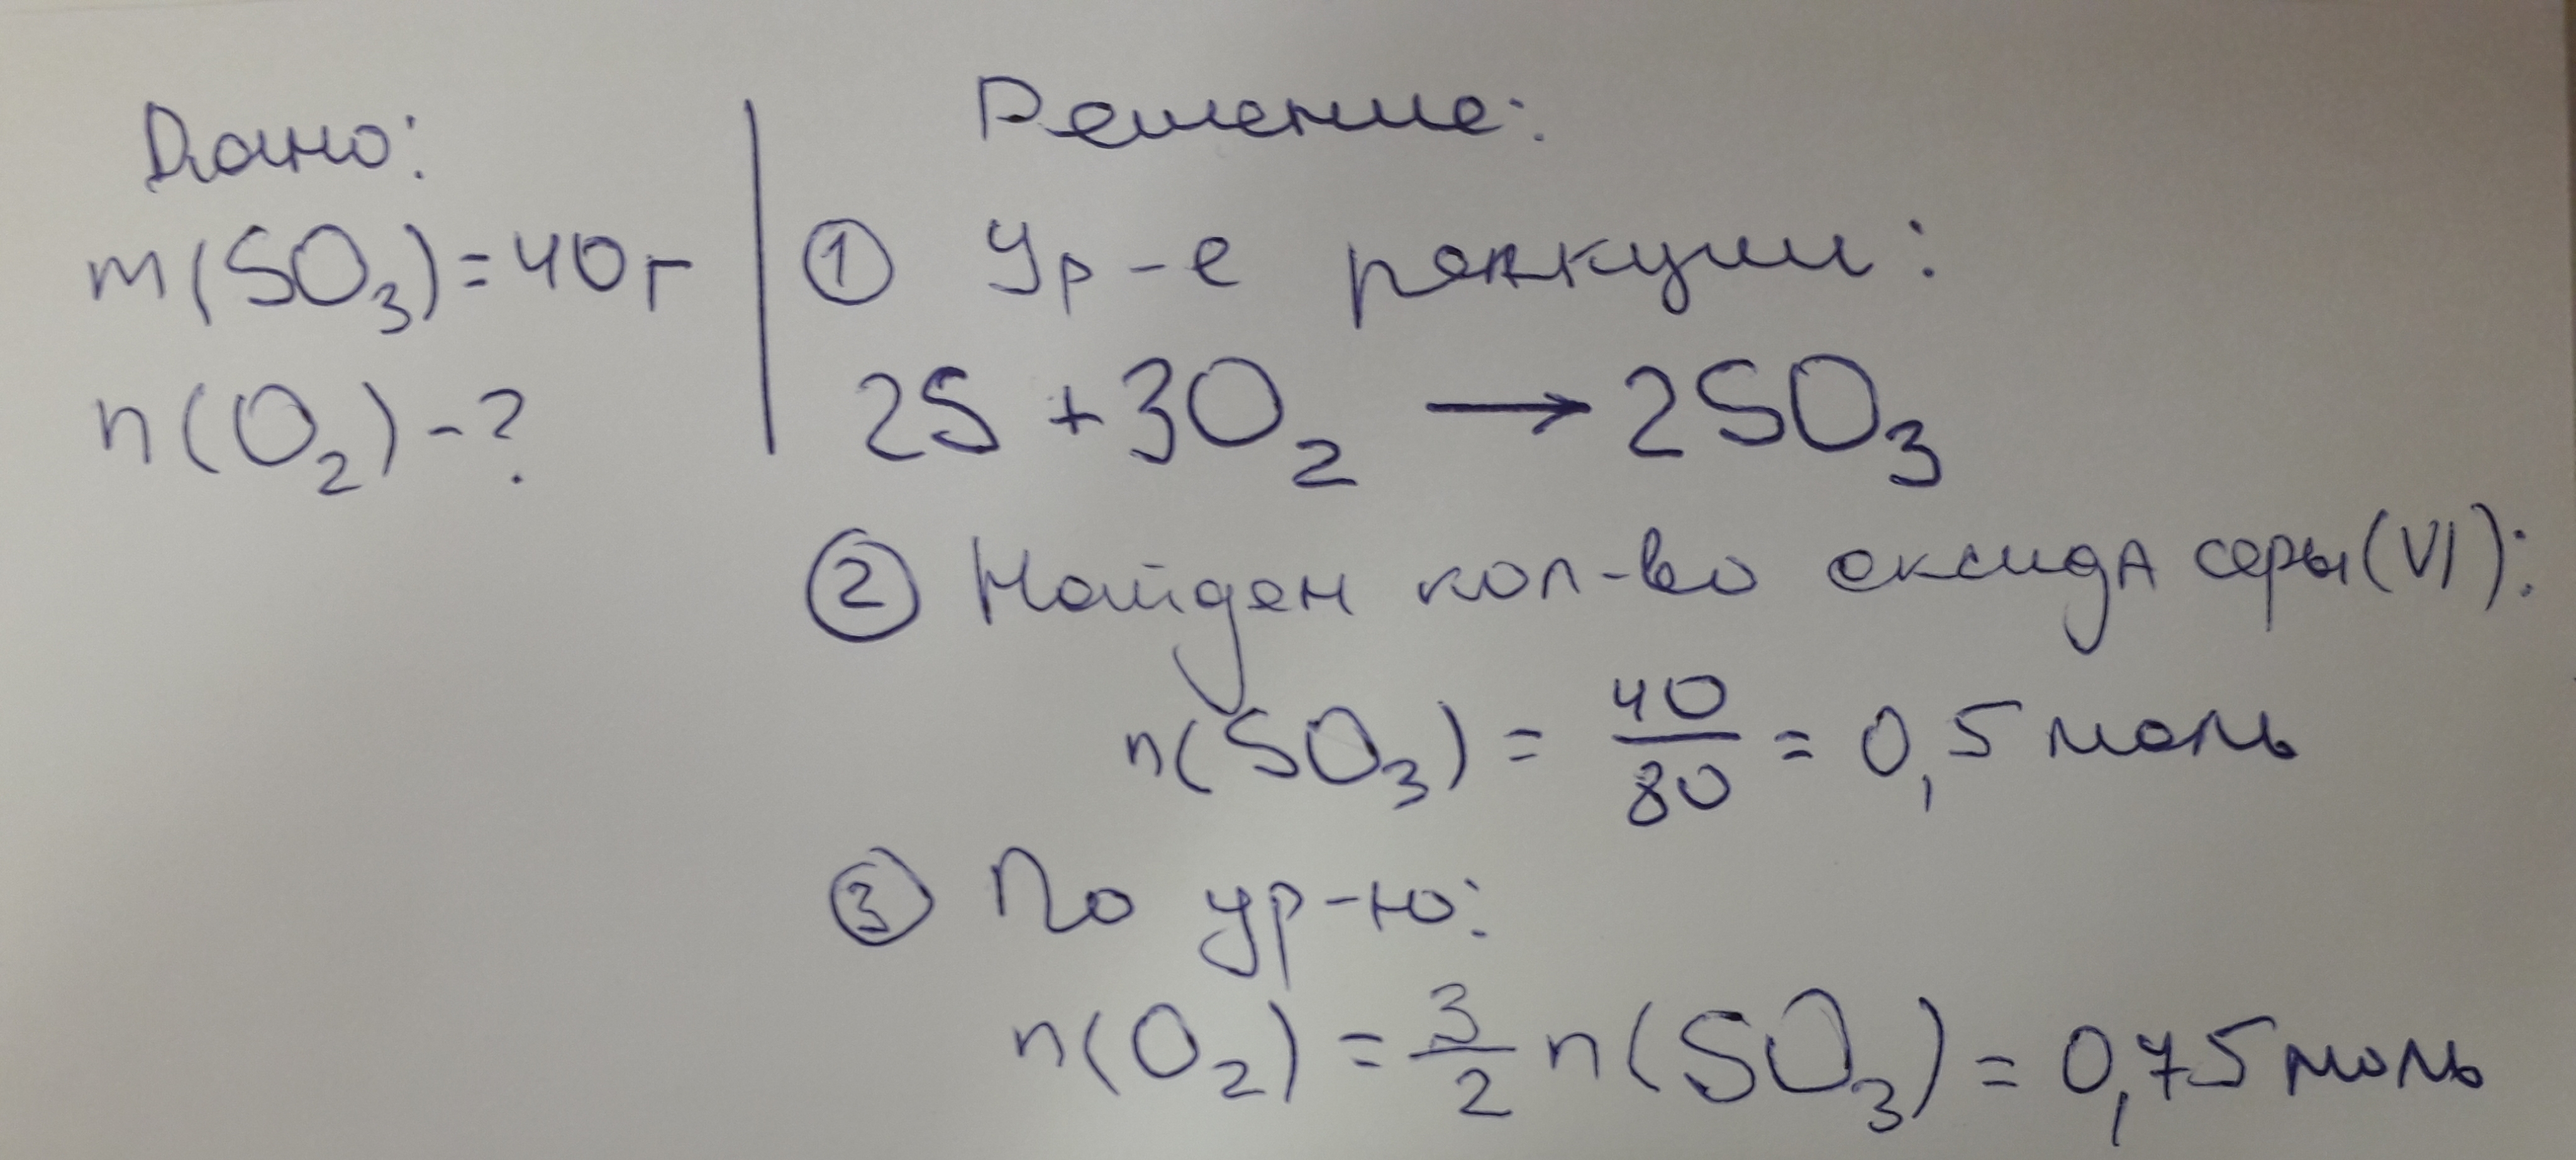 Дано:
m(SO₃)=40г
n(O₂)-?
Решение:
① Ур-е реакции:
2S + 3O₂ → 2SO₃
② Найдем кол-во оксида серы(VI):
n(SO₃) = 40/80 = 0,5 моль
③ По ур-ю:
n(O₂) = 3/2 n(SO₃) = 0,75 моль